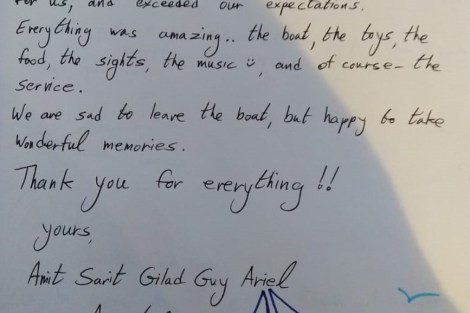 for us, and exceeded our expectations.
Everything was amazing.. the boat, the toys, the
food, the sights, the music ü, and of course- the
service.
We are sad to leave the boat, but happy to take
wonderful memories.
Thank you for everything !!
yours,
Amit Sarit Gilad Guy Ariel